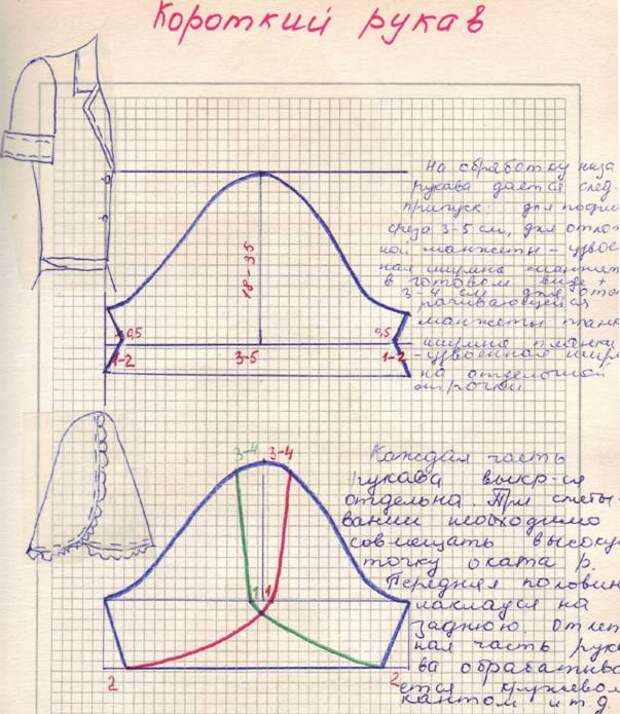 Короткий рукав
На обработку низа
рукава дается след.
припуск: для подги
среза 3-5 см, для отлож
ной манжеты - удвое
ная ширина манжет
в готовом виде +
3-4 см для ота
рачивающейся
манжеты планк
ширина планки
- удвоенная шир
на отделочной
строчки
18-35
0,5
0,5
1-2
3-5
1-2
3-4
3-4
Каждая часть
рукава выкр-ся
отдельна. При сметы-
вании необходимо
совмещать высоку
точку оката р.
Передняя половин
накладся на
заднюю. отлет
ная часть рука
ва обрабатыва
ется кружевом
кантом и т.д.
1
1
2
2